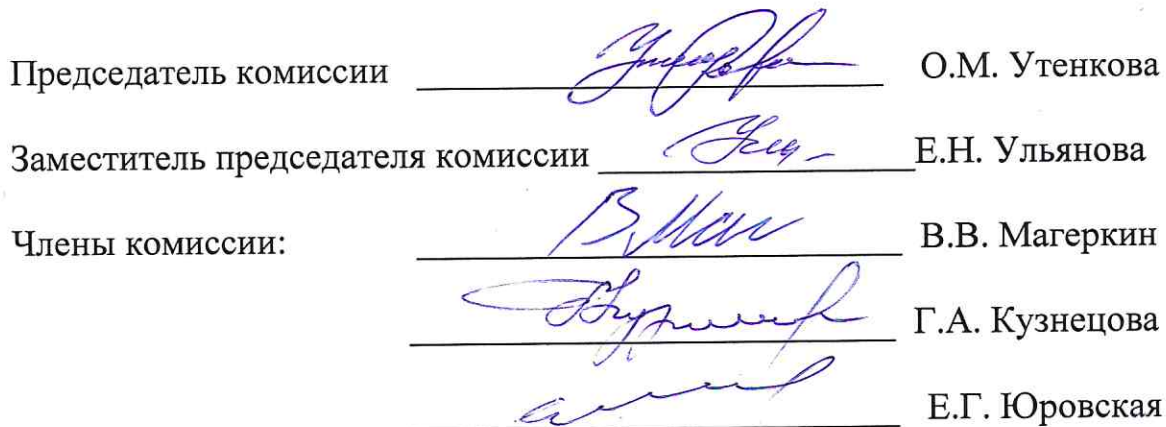 Председатель комиссии О.М. Утенкова
Заместитель председателя комиссии Е.Н. Ульянова
Члены комиссии: В.В. Магеркин
Г.А. Кузнецова
Е.Г. Юровская